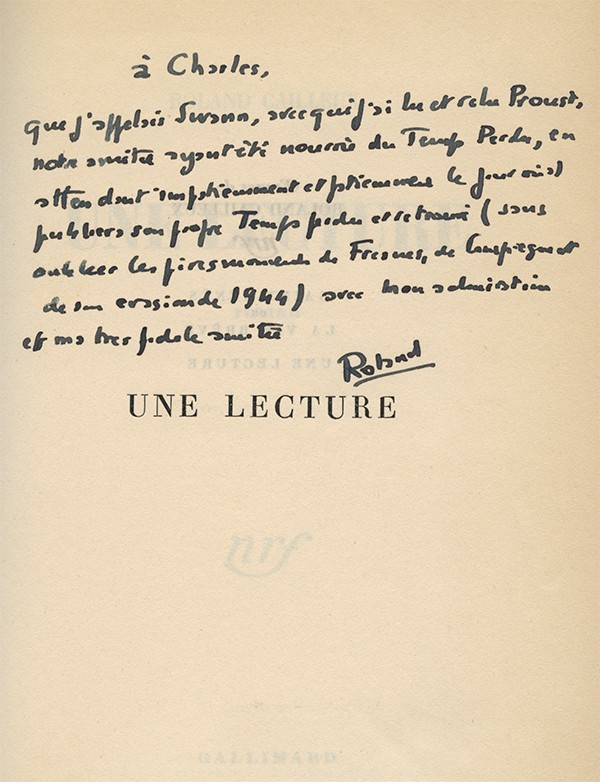 à Charles,
que j'appelais Swann, avec qui j'ai lu et relu Proust,
notre amitié ayant été nourrie du Temps Perdu, en
attendant impatiemment et patiemment le jour où il
publiera son propre Temps perdu et retrouvé (sans
oublier les pires moments de Fresnes, de Compiègne et
de son évasion de 1944) avec mon admiration
et ma très fidèle amitié
Roland
UNE LECTURE
nrf
GALLIMARD